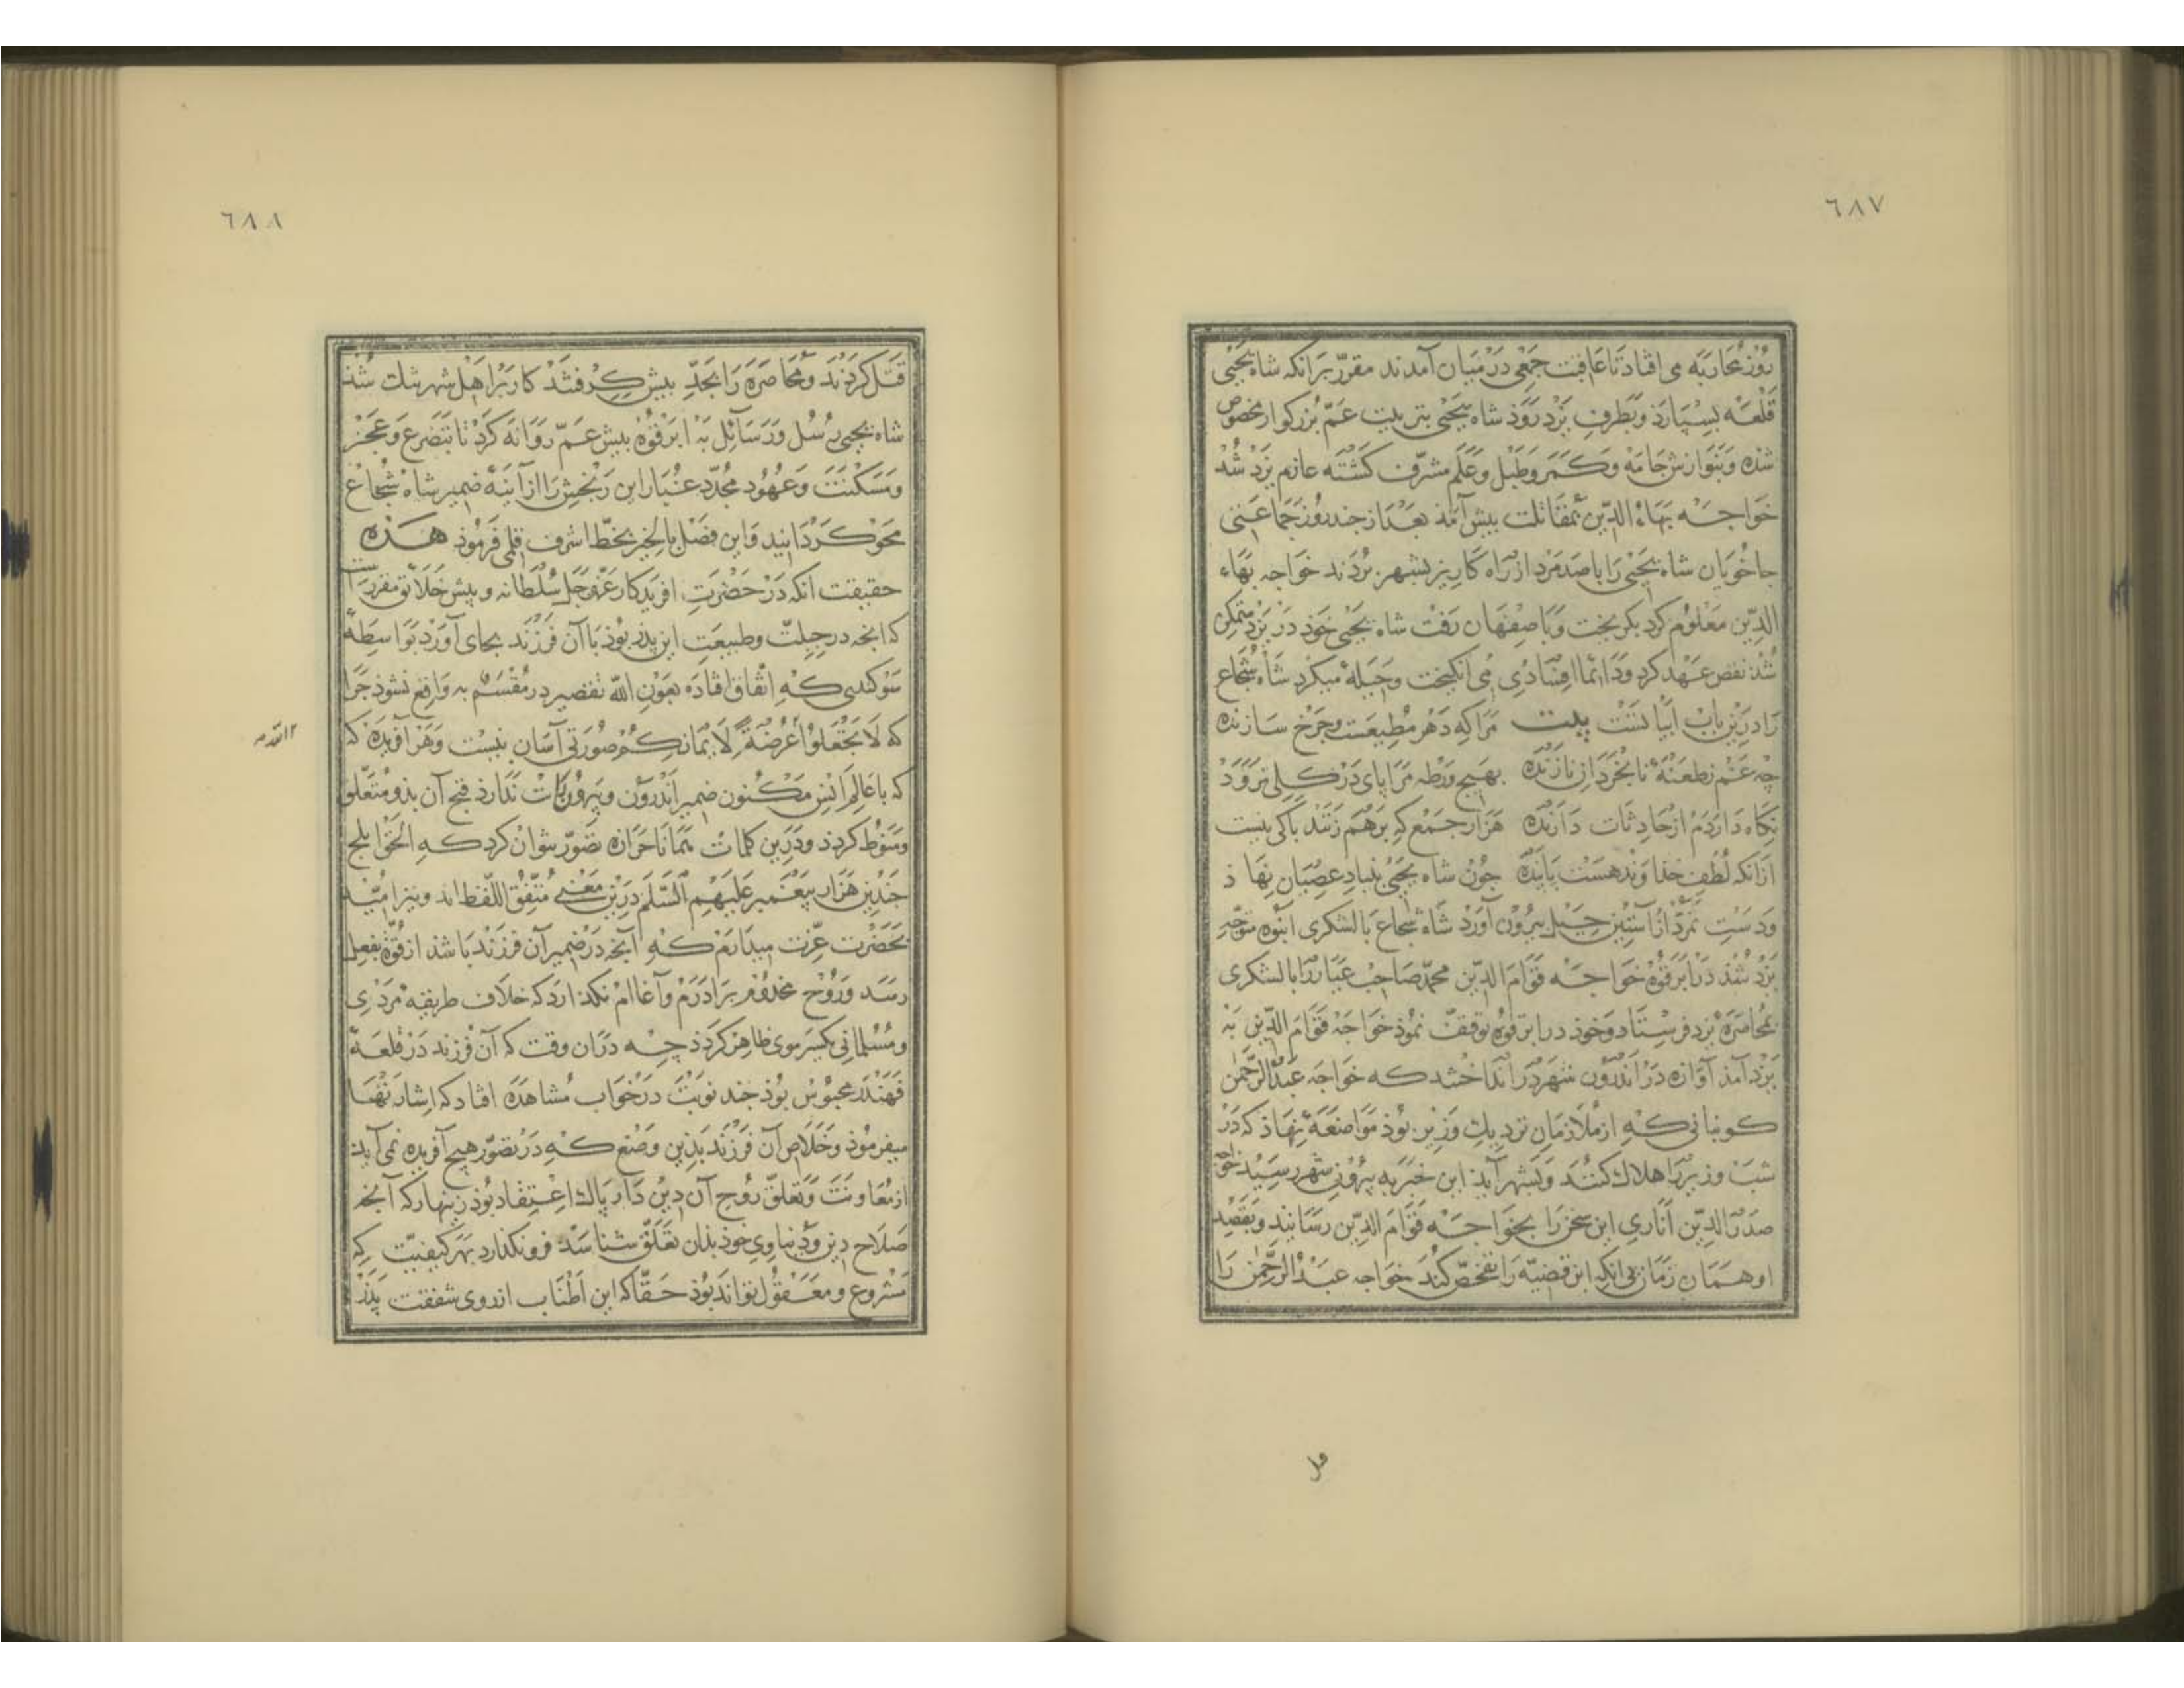 ٦٨٧
روز محاربه می افتاد تا عاقبت جمعی در میان آمدند مقرّر برانکه شاه یحیی
قلعه بسپارذ و بطرف یزد روذ شاه یحیی بتربیت عمّ بزرکوار مخصوص
شذه و بنوازش جامه و کمر و طبل و علم مشرّف کشته عازم یزد شد
خواجه بهاء الدّین بمقاتلت بیش آمذ بعد از جند روز جماعتی
جاخویان شاه یحیی را با صد مرد از راه کاریز بشهر بردند خواجه بهاء
الدّین معلوم کرد بکریخت و باصفهان رفت شاه یحیی جون در یزد متمکن
شذ نقض عهد کرد و دائما افسادی می انکیخت و حیله میکرد شاه شجاع
را درین باب ابیاتست بیت مرا که دهر مطیعست و جرخ سازنده
چه غم ز طعنهٔ نابخردان نازنده بهیچ ورطه مرا پای در کلی نرود
نکاه داردم از حادثات دارنده هزار جمع که برهم زنند باکی نیست
ازانکه لطف خداوند هست پاینده جون شاه یحیی بنیاد عصیان نهاذ
و دست تمرّد از آستین حیل بیرون آورد شاه شجاع با لشکری انبوه متوجه
یزد شذ در ابرقوه خواجه قوام الدّین محمّد صاحب عیار را با لشکری
بمحاصره یزد فرستاد و خوذ در ابرقوه توقف نموذ خواجه قوام الدّین به
یزد آمذ آوازه در اندرون شهر در انداختند که خواجه عبد الرّحمن
کوبنانی که از ملازمان نزدیک وزیر بوذ مواضعه نهاذ که در
شب وزیر را هلاک کند و بشهر آید این خبر به بیرون شهر رسید خواجه
صدر الدّین اناری این سخن را بخواجه قوام الدّین رسانید و بقصد
او همان زمان بی آنکه این قضیّه را تفحّص کند خواجه عبد الرّحمن را
٦٨٨
قتل کردند و محاصره را بجدّ بیش کرفتند کار بر اهل شهر تنک شذ
شاه یحیی رسل و رسائل به ابرقوه بیش عمّ روانه کرد تا بتضرع و عجز
و مسکنت و عهود مجدّد غبار این رنجش را از آینهٔ ضمیر شاه شجاع
محو کردانید و این فصل بالخیر بخطّ اشرف قلمی فرموذ هذه
حقیقت انکه در حضرت افریدکار عزّ و جلّ سلطانه و بیش خلائق مقررست
که انجه در جبلّت و طبیعت این بذر بوذ با آن فرزند بجای آورد بواسطهٔ
سوکندی که اتفاق افتاده بعون الله تقصیر در مقسم به واقع نشوذ جرا
که لا تجعلوا عرضة لایمانکم صورتی آسان نیست و هر آفریده که
الله
که با عالم انس مکنون ضمیر اندرون و بیرون ندارذ فتح آن بذو متعلق
و منوط کردذ و درین کلمات تصوّر نتوان کرد که الحق ابلج
جندین هزار بیغمبر علیهم السّلم درین معنی متّفق اللّفظ اند و نیز امید
بحضرت عزّت میدارم که آنجه در ضمیر آن فرزند باشذ از قوّة بفعل
رسد و روح مخدوم برادرم و آغاام نکذارد که خلاف طریقهٔ مردی
و مسلمانی یکسر موی ظاهر کردذ چه دران وقت که آن فرزند در قلعهٔ
قهندز محبوس بوذ جند نوبت در خواب مشاهده افتاد که اشارتها
میفرموذ و خلاص آن فرزند بذین وضع که در تصوّر هیچ آفریده نمی آید
از معاونت و تعلّق روح آن دین دار پاک اعتقاد بوذ زینهار که آنجه
صلاح دین و دنیاوی خوذ بذان تعلّق شناسد فرو نکذارد بهر کیفیّت که
مشروع و معقول تواند بوذ حقّا که این اطناب از روی شفقت پذر